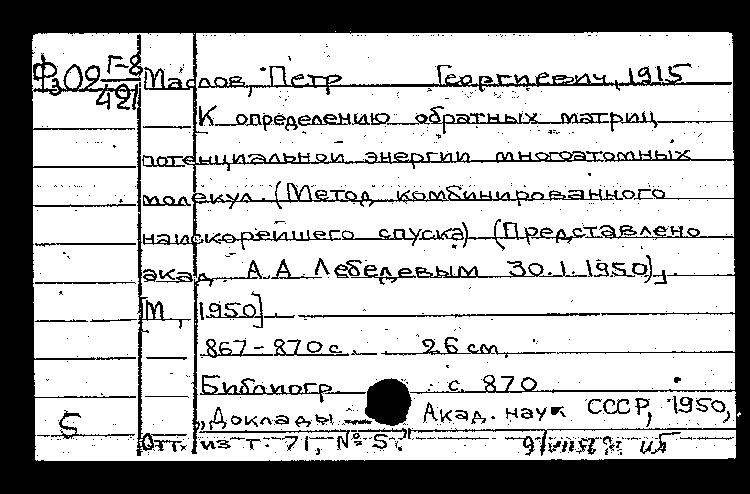 Ф₃02 Г-8/421 Маслов, Петр Георгиевич, 1915
К определению обратных матриц
потенциальной энергии многоатомных
молекул. (Метод комбинированного
наискорейшего спуска). (Представлено
акад. А.А. Лебедевым 30.1.1950).
[М., 1950].
867-870 с. 26 см.
Библиогр. с. 870
5 „Доклады Акад. наук СССР, 1950,
Отт. из т. 71, № 5."